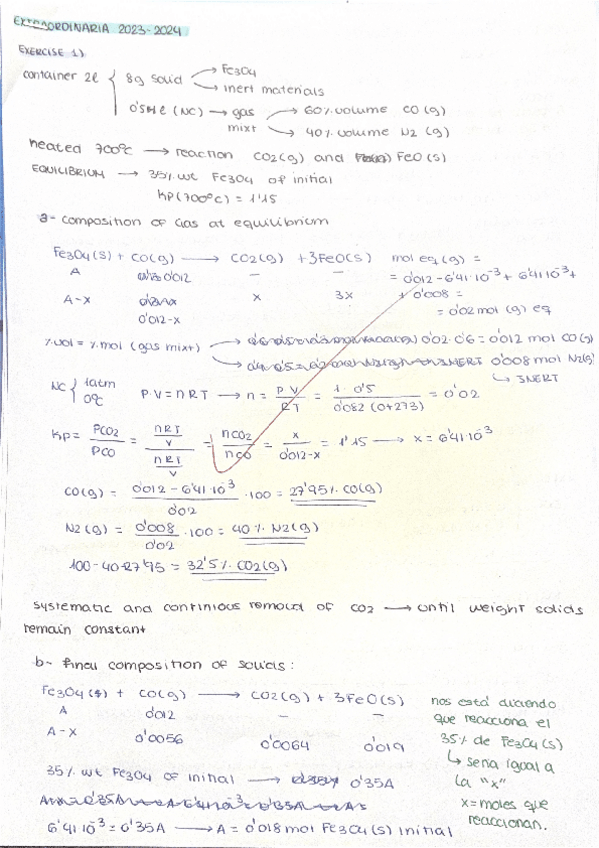 EXTRAORDINARIA 2023-2024
EXERCISE 1)
container 2l { 8g solid → Fe3O4
→ inert materials
0'5 l (NC) → gas mixt → 60% volume CO(g)
→ 40% volume N2 (g)
heated 700ºC → reaction CO2(g) and FeO(s)
EQUILIBRIUM → 35% wt Fe3O4 of initial
Kp(700ºC) = 1'15
a- composition of Gas at equilibrium
Fe3O4(s) + CO(g) → CO2(g) + 3FeO(s) mol eq(g) =
A 0'012 - - = 0'012 - 6'41·10⁻³ + 6'41·10⁻³ +
A-x 0'012-x x 3x + 0'008 =
= 0'02 mol (g) eq
%vol = %mol (gas mixt) → 0'02·0'6 = 0'012 mol CO(g)
→ INERT 0'008 mol N2(g)
↳ INERT
NC { 1atm 0ºC P·V = nRT → n = PV/RT = 1·0'5/0'082(0+273) = 0'02
Kp = PCO2/PCO = nRT/V / nRT/V = nCO2/nCO = x/0'012-x = 1'15 → x = 6'41·10⁻³
CO(g) = 0'012 - 6'41·10⁻³/0'02 ·100 = 27'95% CO(g)
N2(g) = 0'008/0'02 ·100 = 40% N2(g)
100-40-27'95 = 32'5% CO2(g)
systematic and continious removal of CO2 → until weight solids
remain constant
b- final composition of solids:
Fe3O4(s) + CO(g) → CO2(g) + 3FeO(s)
A 0'012 - -
A-x 0'0056 0'0064 0'019
nos está diciendo
que reacciona el
35% de Fe3O4(s)
↳ seria igual a
la "x"
x = moles que
reaccionan.
35% wt Fe3O4 of initial → 0'35A
6'41·10⁻³ = 0'35A → A = 0'018 mol Fe3O4(s) initial